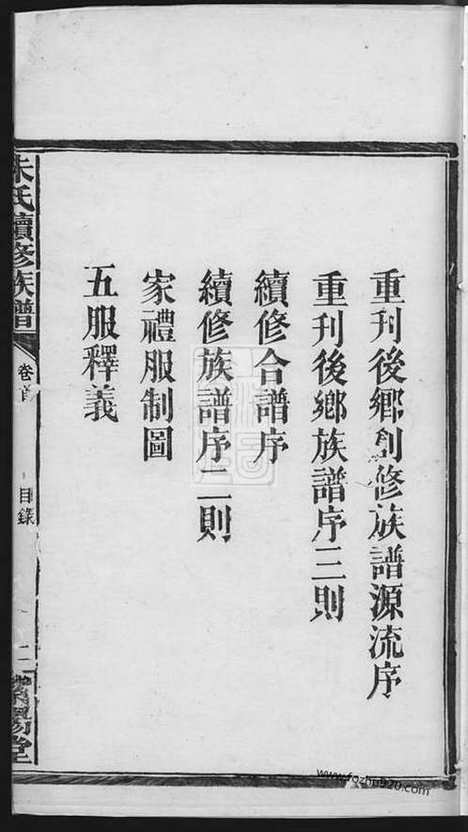 重刊後鄉創修族譜源流序
重刊後鄉族譜序三則
續修合譜序
續修族譜序二則
家禮服制圖
五服釋義
朱氏續修族譜
卷首
目錄
二
堂
www.fozhu920.com